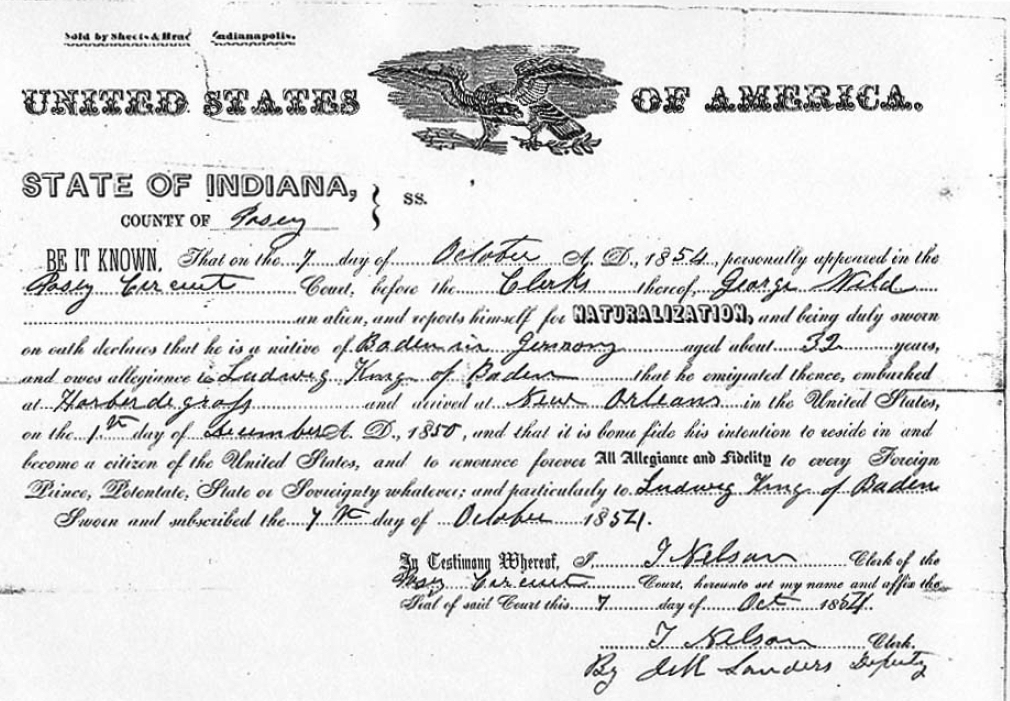 Sold by Sheets & Indianapolis.
UNITED STATES OF AMERICA.
STATE OF INDIANA, } SS.
COUNTY OF Posey
BE IT KNOWN, That on the 7 day of October A. D., 1854, personally appeared in the
Posey Circuit Court, before the Clerks thereof, George Wild
an alien, and reports himself for NATURALIZATION, and being duly sworn
on oath declares that he is a native of Baden in Germony aged about 32 years,
and owes allegiance to Ludwig King of Baden that he emigrated thence, embarked
at Harberdegrass and arrived at New Orleans in the United States,
on the 1st day of December A. D., 1850, and that it is bona fide his intention to reside in and
become a citizen of the United States, and to renounce forever All Allegiance and Fidelity to every Foreign
Prince, Potentate, State or Sovereignty whatever; and particularly to Ludwig King of Baden
Sworn and subscribed the 7th day of October 1854.
In Testimony Whereof, I, T Nelson Clerk of the
Posy Circuit Court, hereunto set my name and affix the
Seal of said Court this 7 day of Oct 1854.
T Nelson Clerk.
By Sanders Deputy